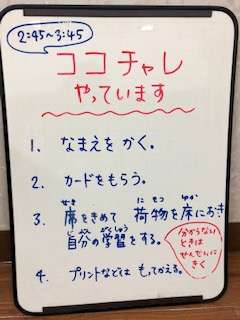 2:45~3:45
ココチャレ
やっています
1. なまえを かく。
2. カードをもらう。
3. 席をきめて 荷物を床におき
せき にもつ ゆか
自分の学習をする。
じぶん がくしゅう
分からない
ときは
せんせいに
きく
4. プリントなどは もってかえる。